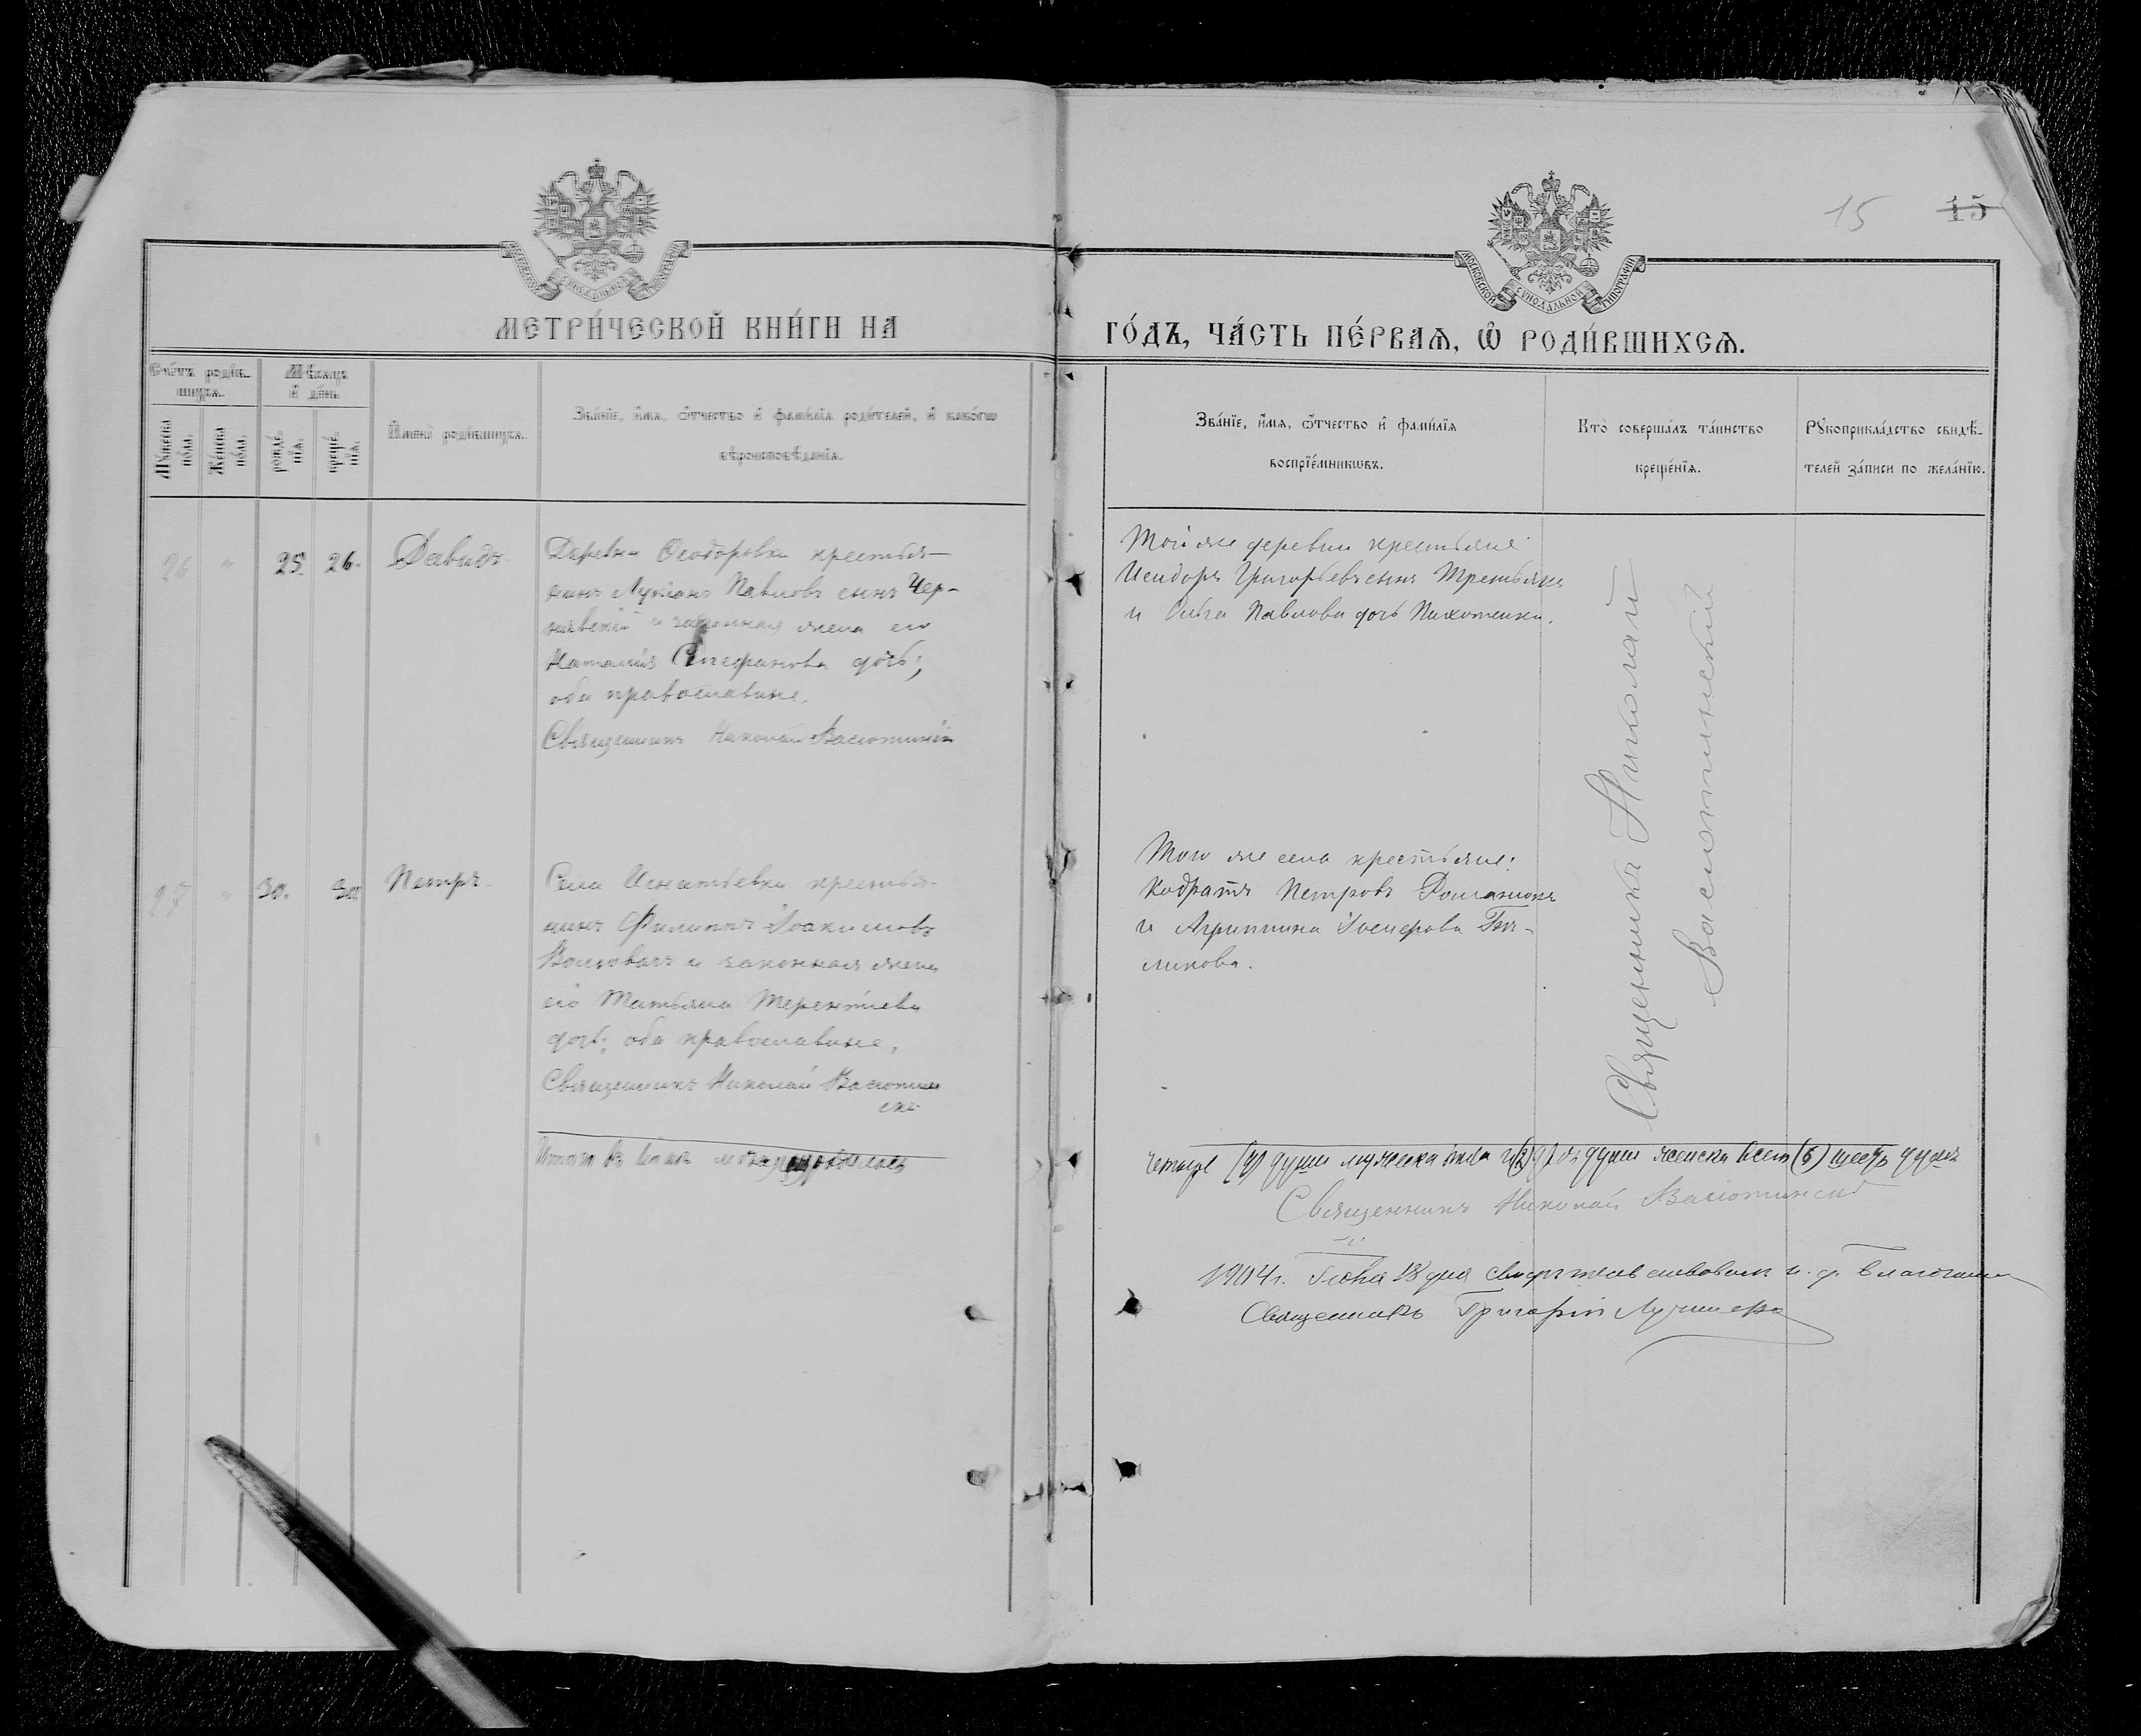 15 15
МОСКОВСКОЙ СѴНОДАЛЬНОЙ ТИПОГРАФІИ
МЕТРИ́ЧЕСКОЙ КНИ́ГИ НА ГО́ДЪ, ЧА́СТЬ ПЕ́РВАѦ, Ѡ҆ РОДИ́ВШИХСѦ.
Сче́тъ роди́в-
шихсѧ.
Мꙋ́жеска по́ла.
Же́нска по́ла.
Мѣ́сѧцъ
и҆ де́нь
рожде́-
нїѧ.
креще́-
нїѧ.
И҆мена̀ роди́вшихсѧ.
Зва́нїе, и҆́мѧ, ѻ҆́тчество и҆ фами́лїѧ роди́телей, и҆ како́гѡ
вѣроисповѣ́данїѧ.
Зва́нїе, и҆́мѧ, ѻ҆́тчество и҆ фами́лїѧ
воспрїе́мникѡвъ.
Кто̀ соверша́лъ та́инство
креще́нїѧ.
Рꙋкоприкла́дство свидѣ́-
телей за́писи по жела́нїю.
26 " 25. 26. Давидъ
Деревни Ѳеодоровки крестья-
нинъ Лукіанъ Павловъ сынъ Чер-
нявскій и законная жена его
Наталія Стефанова дочь;
оба православные.
Священникъ Николай Васютинскій
Той же деревни крестьяне
Исидоръ Григорьевъ сынъ Третьякъ
и Ольга Павлова дочь Пихотенко.
Священникъ Николай
Васютинскій
27 " 30. 30. Петръ
Села Игнатьевки крестья-
нинъ Филиппъ Іоакимовъ
и законная жена
его Татьяна Терентіева
дочь; оба православные,
Священникъ Николай Васютин
ск
Того же села крестьяне:
Кодратъ Петровъ
и Агриппина Іосифова
ликова.
Итого въ родилось
четыре (4) души мужеска пола и (2) двѣ души женска всего (6) шесть душъ
Священникъ Николай Васютинскій
1904 г. 18 дня свидѣтельствовалъ и. д. Благочин
Священникъ Григорій